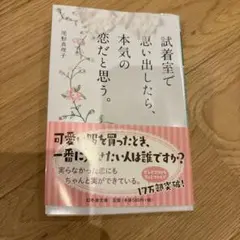 試着室で
思い出したら、
本気の
恋だと思う。
尾形真理子
可愛い服を買ったとき、
一番に
たい人は誰ですか?
実らなかった恋にも
ちゃんと実ができている。
17万部突破!
幻冬舎文庫